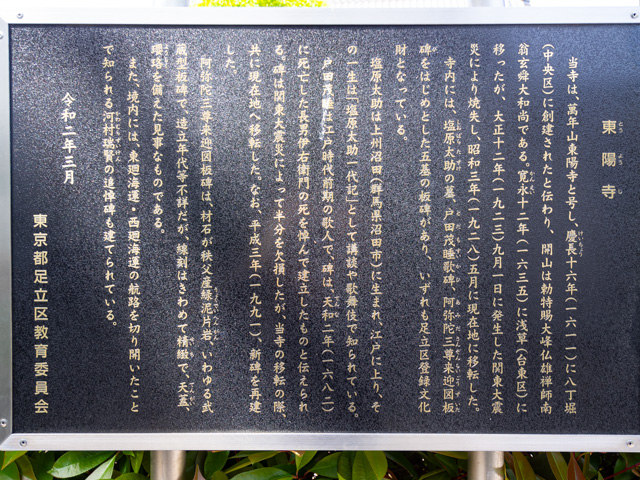 東陽寺
とうようじ
当寺は、萬年山東陽寺と号し、慶長十六年(一六一一)に八丁堀
けいちょう
(中央区)に創建されたと伝わり、開山は勅特賜大峰仏雄禅師南
翁玄舜大和尚である。寛永十二年(一六三五)に浅草(台東区)に
かんえい
移ったが、大正十二年(一九二三)九月一日に発生した関東大震
災により焼失し、昭和三年(一九二八)五月に現在地に移転した。
寺内には、塩原太助の墓、戸田茂睡歌碑、阿弥陀三尊来迎図板
しおばらたすけ
とだもすいかひ
あみださんぞんらいごうずいた
碑をはじめとした五基の板碑があり、いずれも足立区登録文化
び
財となっている。
塩原太助は上州沼田(群馬県沼田市)に生まれ、江戸に上り、そ
の一生は「塩原太助一代記」として講談や歌舞伎で知られている。
戸田茂睡は江戸時代前期の歌人で、碑は、天和二年(一六八二)
てんな
に死亡した長男伊右衛門の死を悼んで建立したものと伝えられ
る。碑は関東大震災によって半分を欠損したが、当寺の移転の際、
共に現在地へ移転した。なお、平成三年(一九九一)、新碑を再建
した。
阿弥陀三尊来迎図板碑は、材石が秩父産緑泥片岩、いわゆる武
蔵型板碑で、造立年代等不詳だが、線刻はきわめて精緻で、天蓋、
せいち
てんがい
瓔珞を備えた見事なものである。
ようらく
また、境内には、東廻海運・西廻海運の航路を切り開いたこと
で知られる河村瑞賢の追悼碑も建てられている。
かわむらずいけん
令和二年三月
東京都足立区教育委員会